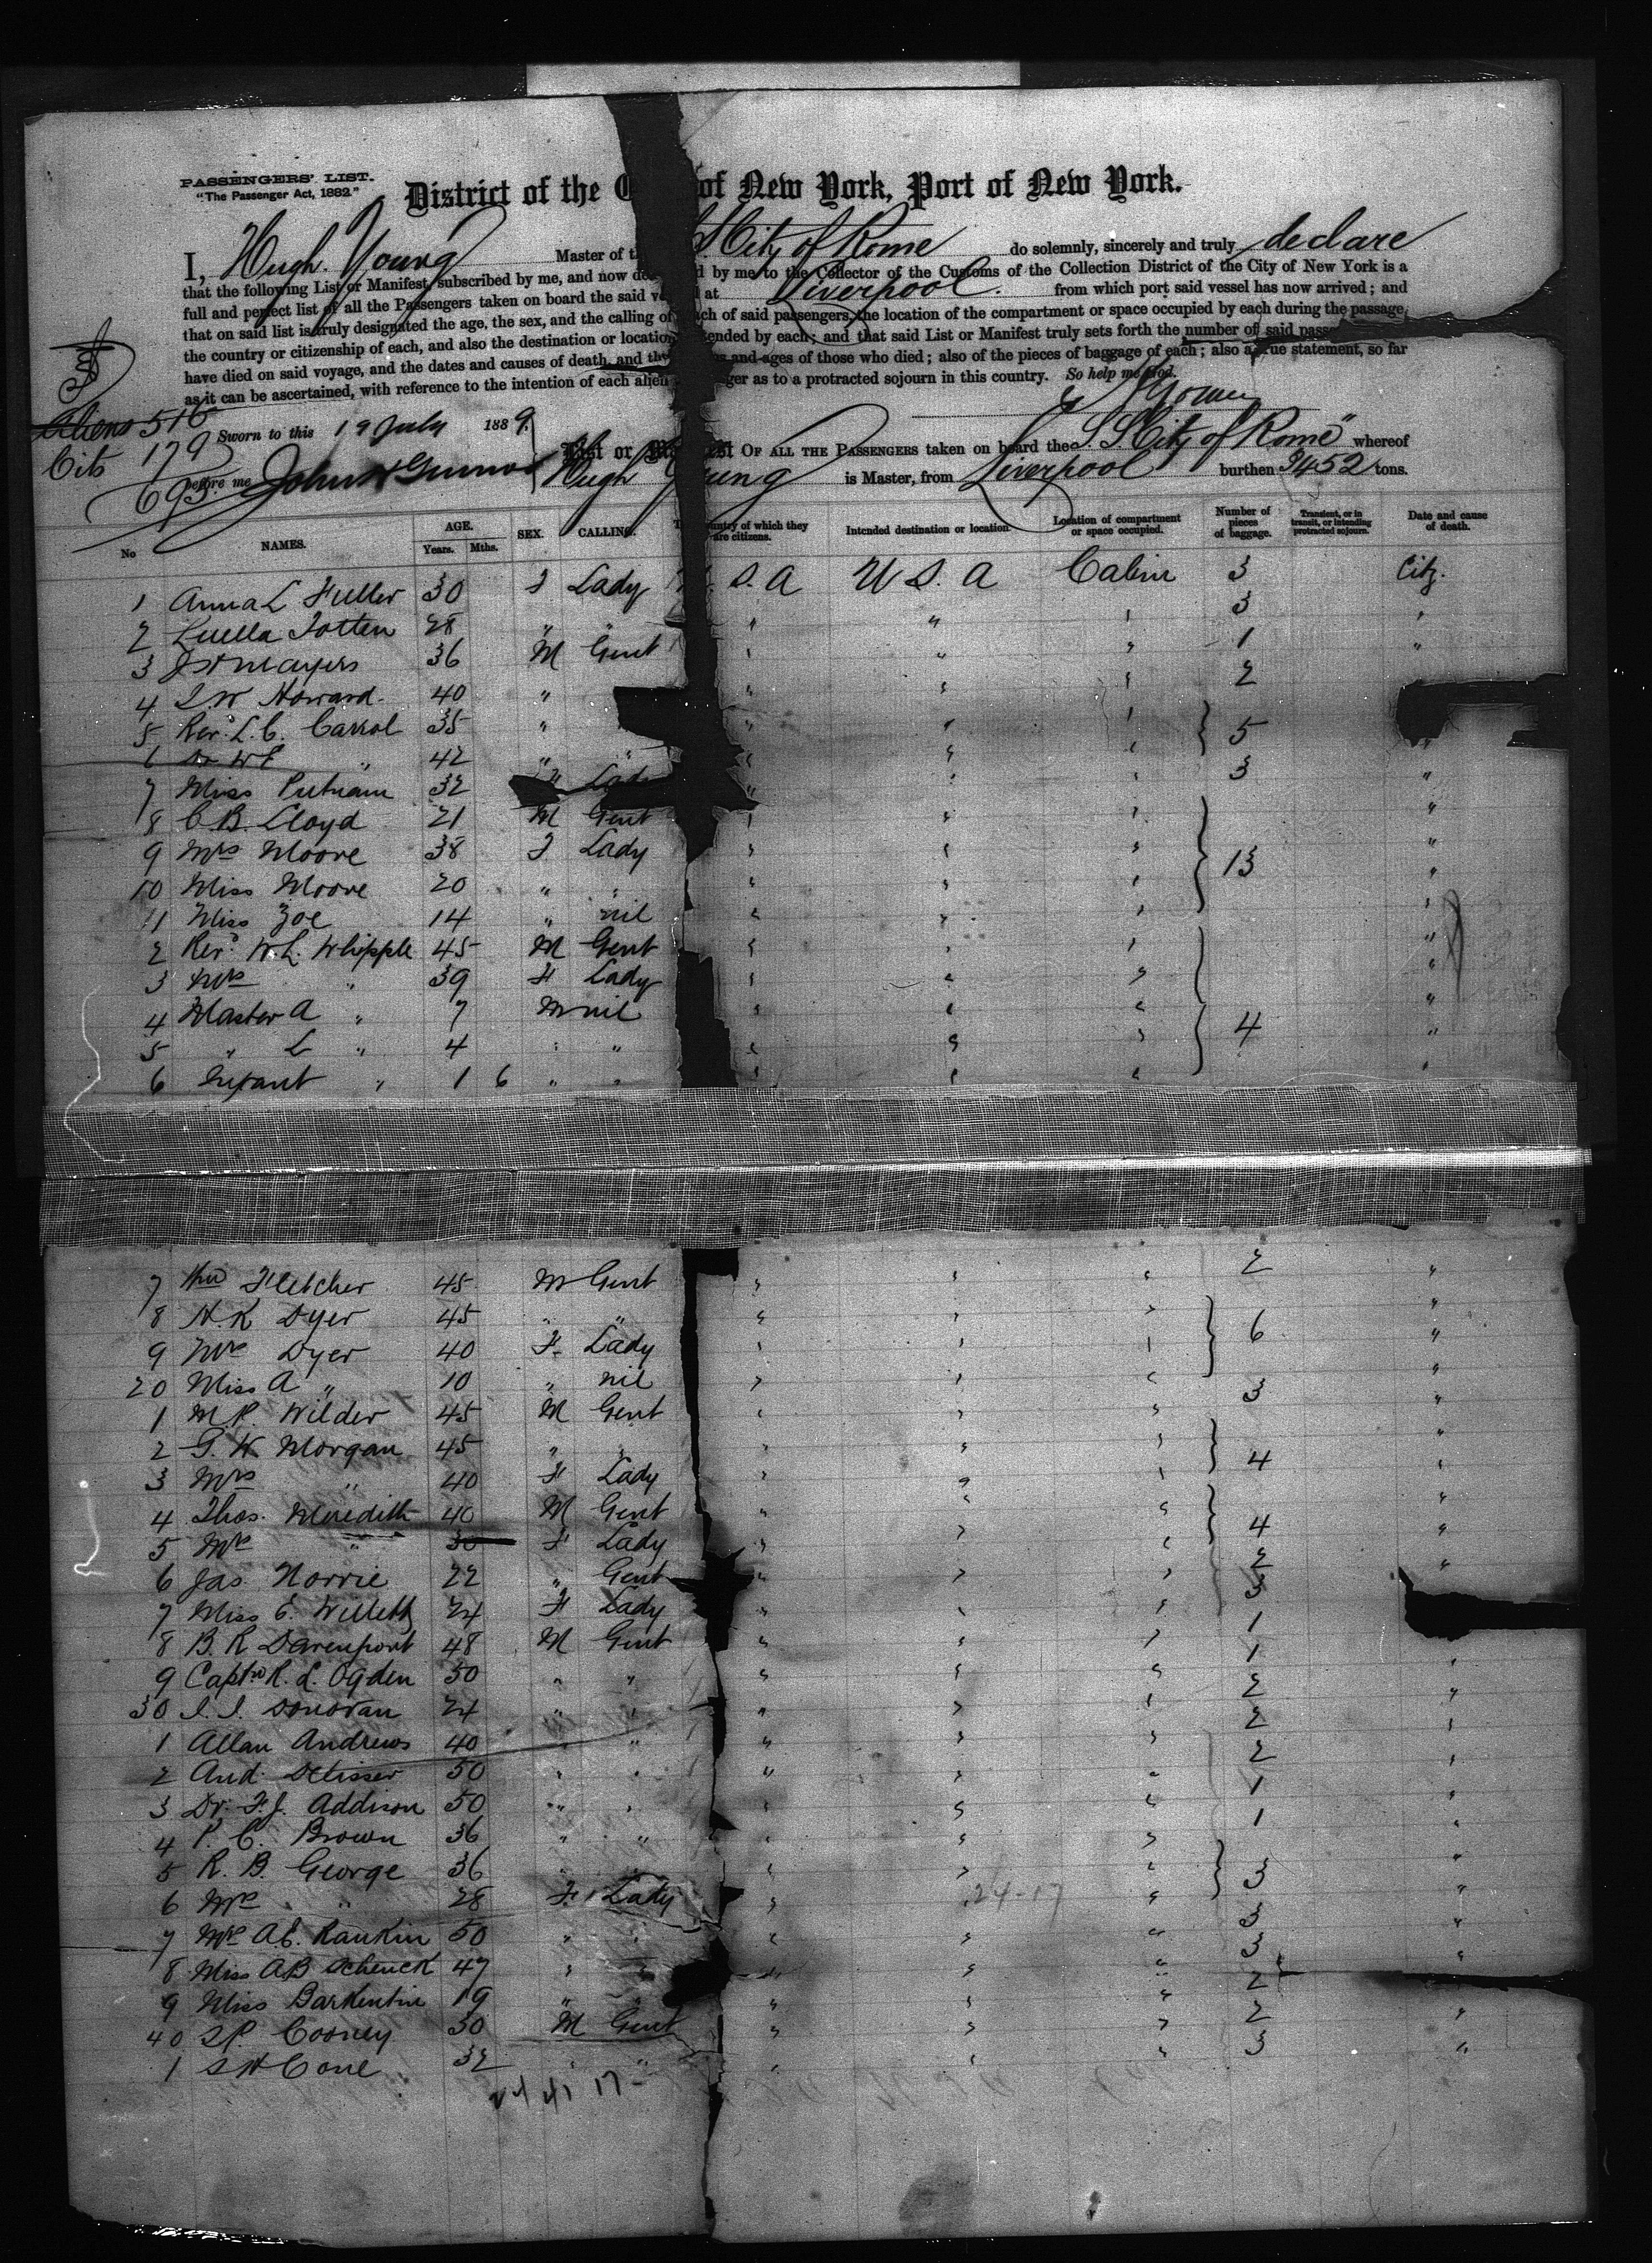 PASSENGERS' LIST.
"The Passenger Act, 1882."
District of the C of New York, Port of New York.
I, Hugh Young Master of th S.S. City of Rome do solemnly, sincerely and truly declare
that the following List or Manifest, subscribed by me, and now de d by me to the Collector of the Customs of the Collection District of the City of New York is a
full and perfect list of all the Passengers taken on board the said ve at Liverpool. from which port said vessel has now arrived; and
that on said list is truly designated the age, the sex, and the calling of ach of said passengers, the location of the compartment or space occupied by each during the passage,
the country or citizenship of each, and also the destination or location ended by each; and that said List or Manifest truly sets forth the number of said passe
have died on said voyage, and the dates and causes of death, and the s and ages of those who died; also of the pieces of baggage of each; also a true statement, so far
as it can be ascertained, with reference to the intention of each alien ger as to a protracted sojourn in this country. So help me God.
H Young
Aliens 516
Cits 179
695
Sworn to this 19 July 1889.
before me John
List or Manifest OF ALL THE PASSENGERS taken on board the S.S. "City of Rome" whereof
Hugh Young is Master, from Liverpool burthen 3452 tons.
No NAMES. AGE. Years. Mths. SEX. CALLING. The country of which they are citizens. Intended destination or location. Location of compartment or space occupied. Number of pieces of baggage. Transient, or in transit, or intending protracted sojourn. Date and cause of death.
1 Anna L Fuller 30 F Lady U. S. A U S. A Cabin 3 Citz.
2 Luella Totten 28 " " " " " 3 "
3 Mayers 36 M Gent " " " 1 "
4 Howard 40 " " " " 2
5 Revd. L. C. Carrol 35 " " " " 5
6 Dr W E " 42 " " " " " "
7 Miss Putnam 32 F Lady " " " 3 "
8 C. B. Lloyd 21 M Gent " " " "
9 Mrs Moore 38 F Lady " " " 13 "
10 Miss Moore 20 " " " " " "
11 Miss Zoe 14 " nil " " " "
2 Revd. W. L. Whipple 45 M Gent " " " "
3 Mrs " 39 F Lady " " " "
4 Master A " 7 M nil " " " 4 "
5 " L " 4 " " " " " "
6 Infant " 1 6 " " " " " "
7 Wm Fletcher 45 M Gent " " " 2 "
8 H. K Dyer 45 " " " " " 6 "
9 Mrs Dyer 40 F. Lady " " " "
20 Miss A " 10 " nil " " " "
1 M. P. Wilder 45 M Gent " " " 3 "
2 G. W Morgan 45 " " " " " 4 "
3 Mrs " 40 F Lady " " " "
4 Thos. Meredith 40 M Gent " " " 4 "
5 Mrs " 30 F Lady " " " "
6 Jas. Norrie 22 " Gent " " " 2 "
7 Miss E. Willetts 24 F Lady " " " 3
8 B. R Davenport 48 M Gent " " " 1
9 Captn R. L. Ogden 50 " " " " " 1 "
30 J. J. Donovan 24 " " " " " 2 "
1 Allan Andrews 40 " " " " " 2 "
2 And. Delisser 50 " " " " " 2 "
3 Dr. F. J. Addison 50 " " " " " 1 "
4 P. C. Brown 36 " " " " " 1 "
5 R. B. George 36 " " " " " 3 "
6 Mrs " 28 F Lady " " " "
24-17
7 Mrs A. E. Rankin 50 " " " " " 3 "
8 Miss A B Schenck 47 " " " " " 3 "
9 Miss Barkentin 19 " " " " " 2
40 S P. Cooney 30 M Gent " " " 2 "
1 S W Cone 32 " " " " " 3 "
24 41 17-